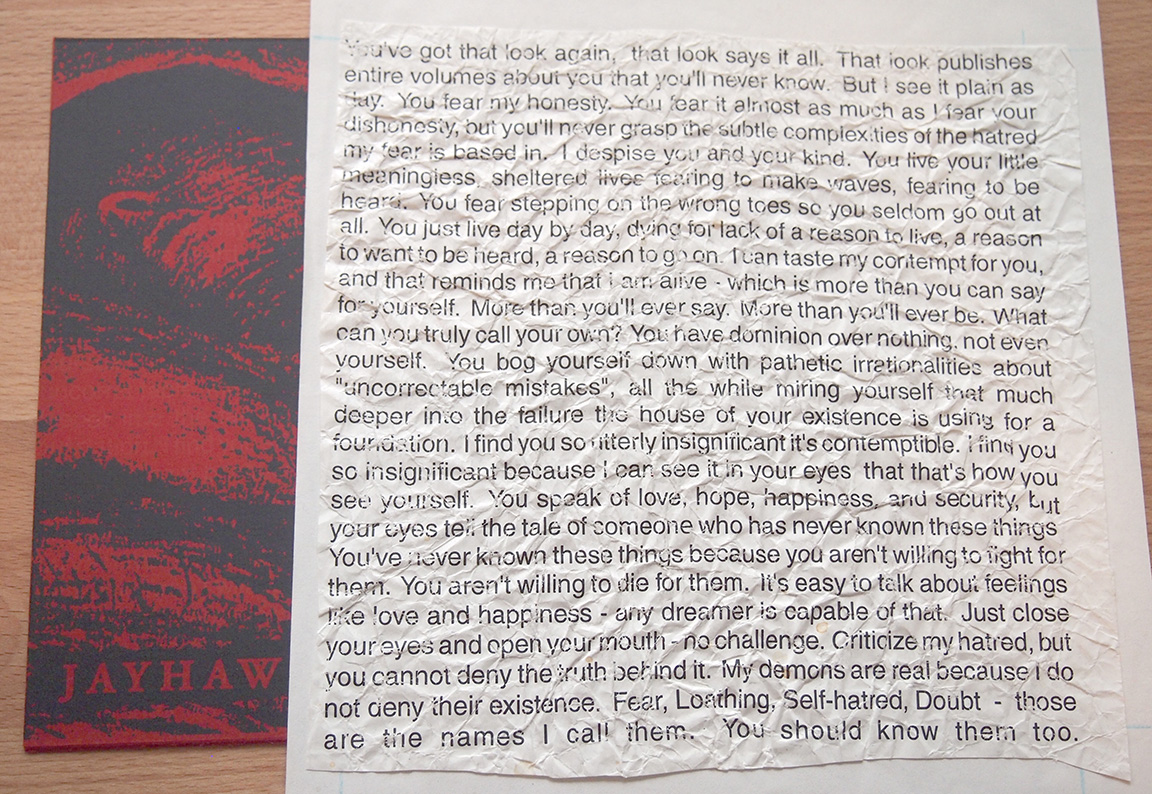 You've got that look again, that look says it all. That look publishes
entire volumes about you that you'll never know. But I see it plain as
day. You fear my honesty. You fear it almost as much as I fear your
dishonesty, but you'll never grasp the subtle complexities of the hatred
my fear is based in. I despise you and your kind. You live your little
meaningless, sheltered lives fearing to make waves, fearing to be
heard. You fear stepping on the wrong toes so you seldom go out at
all. You just live day by day, dying for lack of a reason to live, a reason
to want to be heard, a reason to go on. I can taste my contempt for you,
and that reminds me that i am alive - which is more than you can say
for yourself. More than you'll ever say. More than you'll ever be. What
can you truly call your own? You have dominion over nothing, not even
yourself. You bog yourself down with pathetic irrationalities about
"uncorrectable mistakes", all the while miring yourself that much
deeper into the failure the house of your existence is using for a
foundation. I find you so utterly insignificant it's contemptible. I find you
so insignificant because I can see it in your eyes that that's how you
see yourself. You speak of love, hope, happiness, and security, but
your eyes tell the tale of someone who has never known these things
You've never known these things because you aren't willing to fight for
them. You aren't willing to die for them. It's easy to talk about feelings
like love and happiness - any dreamer is capable of that. Just close
your eyes and open your mouth - no challenge. Criticize my hatred, but
you cannot deny the truth behind it. My demons are real because I do
not deny their existence. Fear, Loathing, Self-hatred, Doubt - those
are the names I call them. You should know them too.
JAYHAW